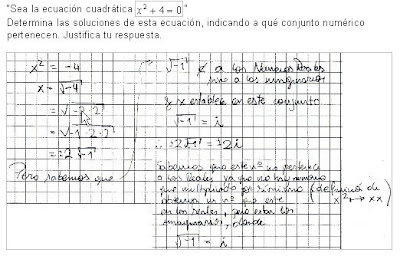 "Sea la ecuación cuadrática x² + 4 = 0"
Determina las soluciones de esta ecuación, indicando a qué conjunto numérico
pertenecen. Justifica tu respuesta.
x² = -4
x = √-4
= √-2·2
= √-1·2·2
= 2√-1
Pero sabemos que
√-1 ∉ a los Números Reales
sino a los imaginarios
y se establece en este conjunto
√-1 = i
∴ 2√-1 = 2i
Sabemos que este nº no pertenece
a los reales ya que no hay número
que multiplicado por sí mismo (definición de
obtenga un nº que este x² → xx)
en los reales, pero están los
imaginarios, donde
√-1 = i